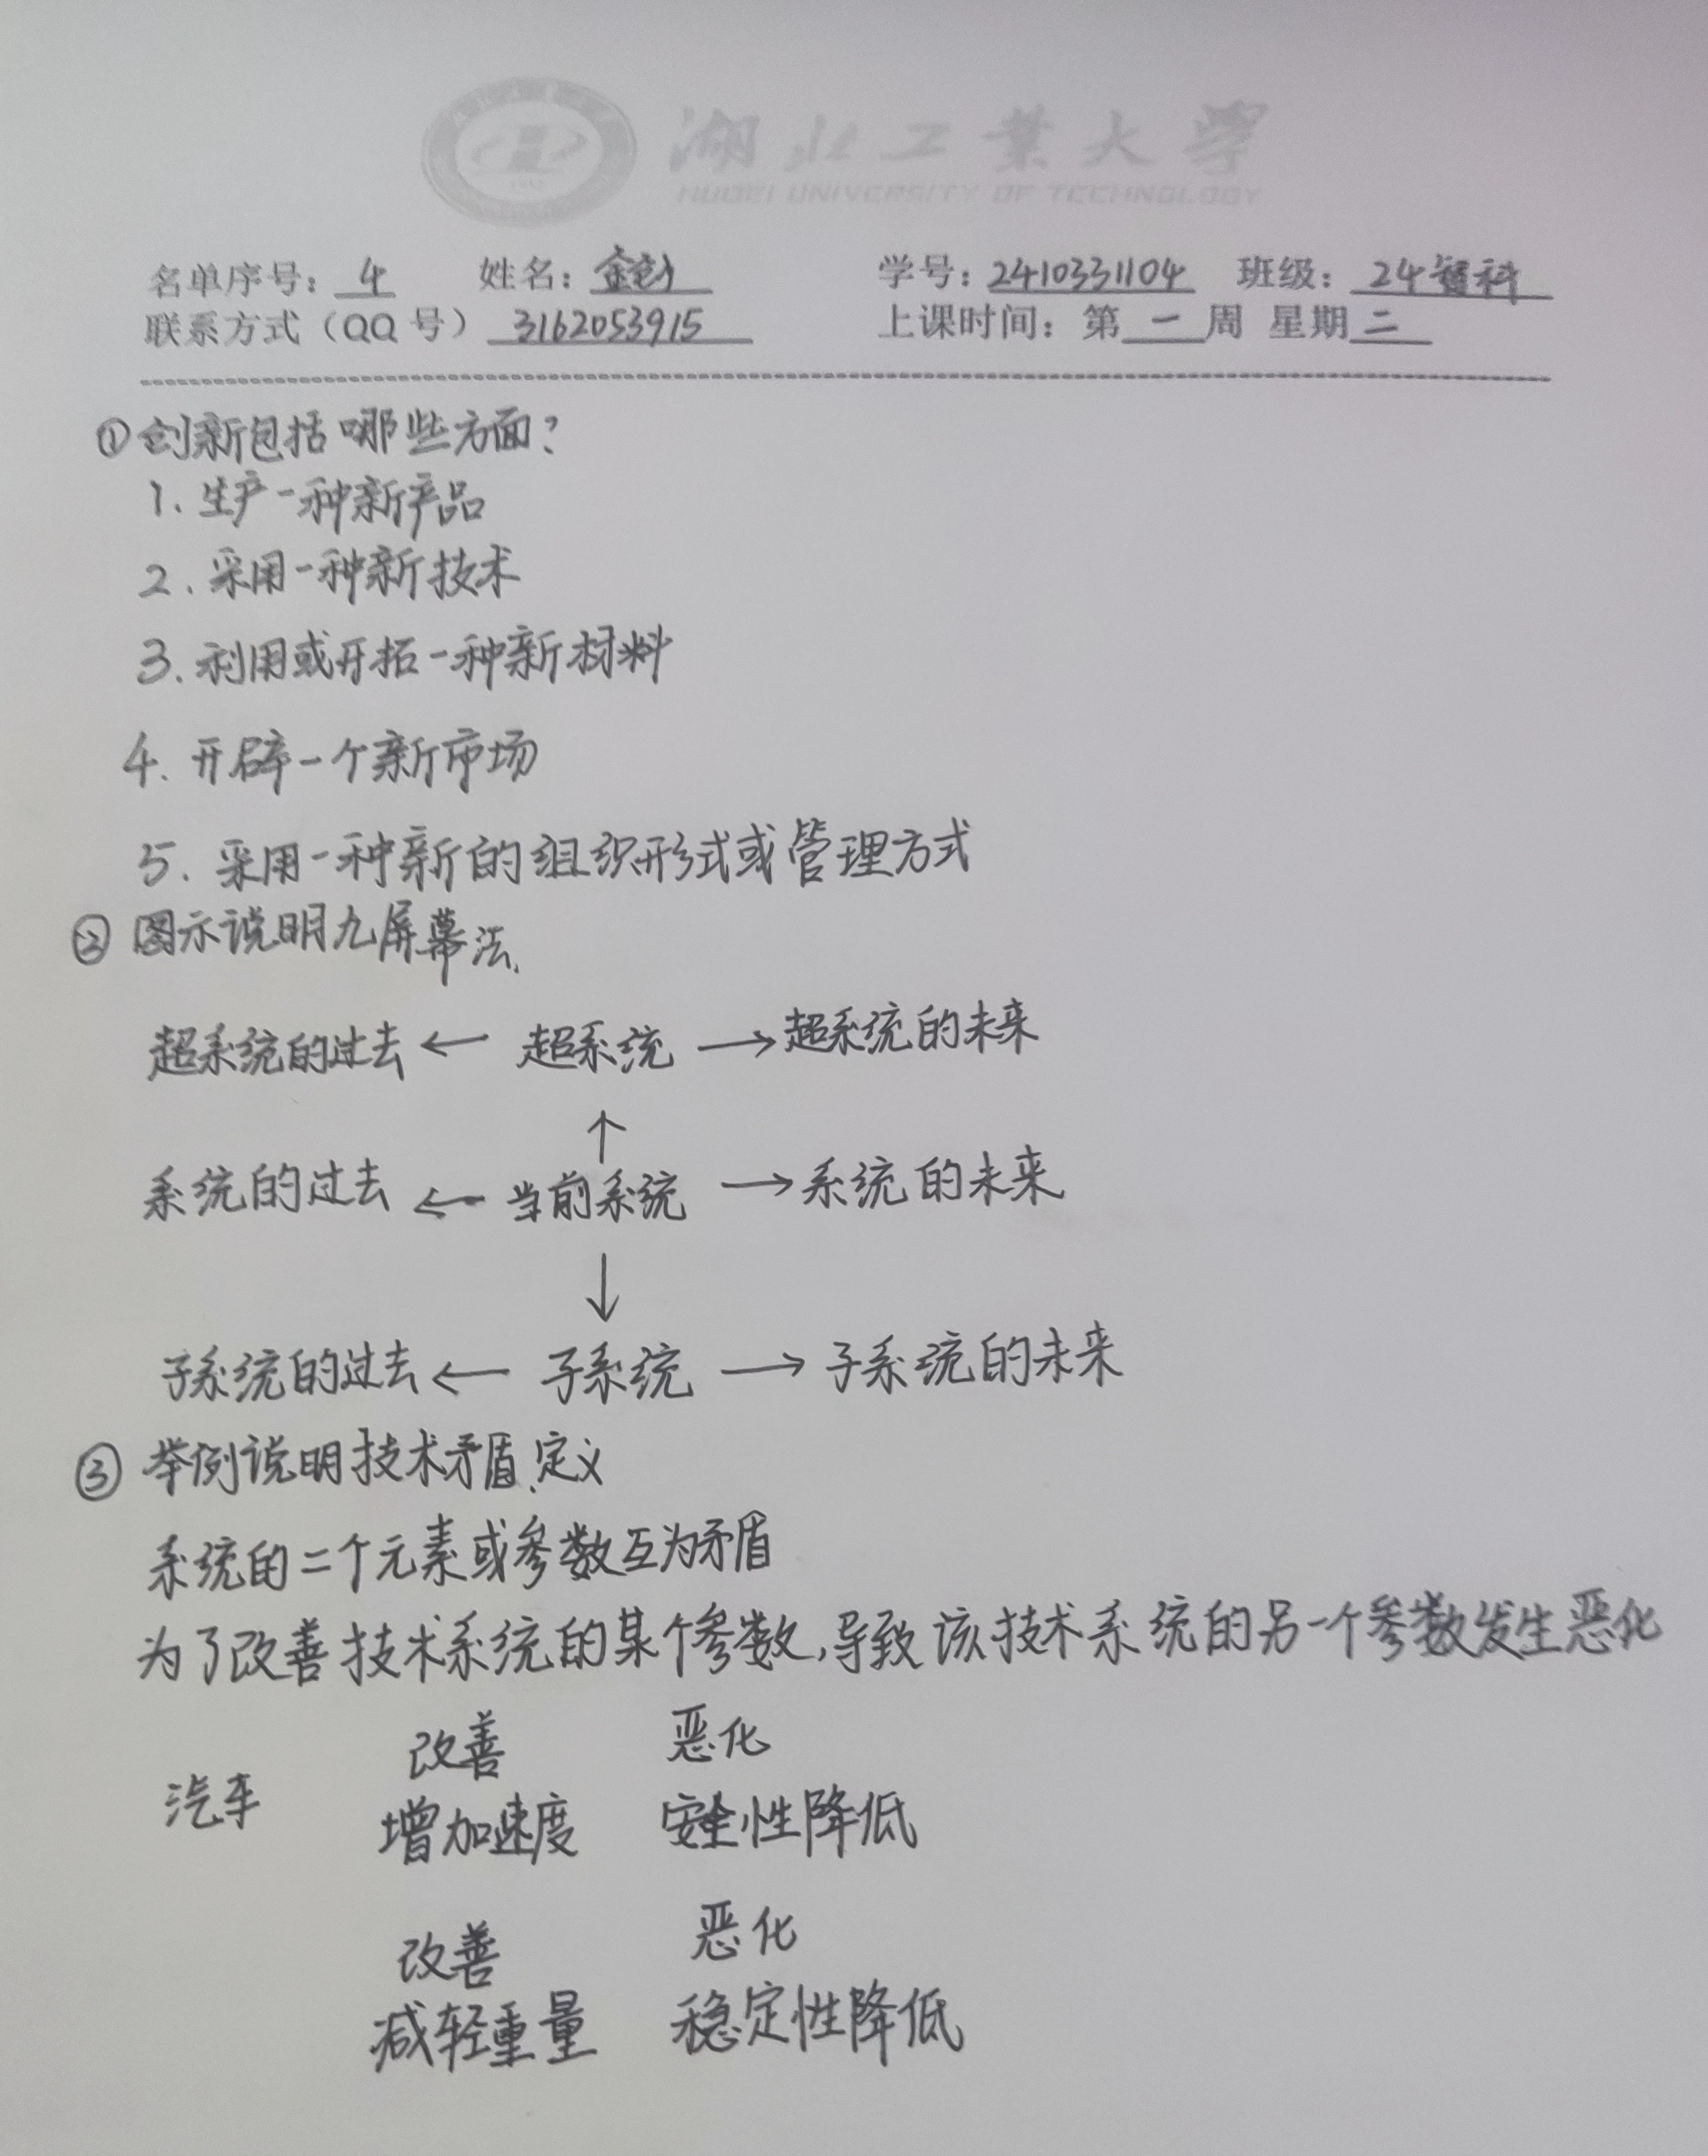 湖北工業大學
HUBEI UNIVERSITY OF TECHNOLOGY
名单序号：4 姓名：金钊 学号：2410331104 班级：24智科
联系方式（QQ 号）3162053915 上课时间：第一周 星期二
①创新包括哪些方面?
1. 生产一种新产品
2. 采用一种新技术
3. 利用或开拓一种新材料
4. 开辟一个新市场
5. 采用一种新的组织形式或管理方式
② 图示说明九屏幕法.
超系统的过去 ← 超系统 → 超系统的未来
↑
系统的过去 ← 当前系统 → 系统的未来
↓
子系统的过去 ← 子系统 → 子系统的未来
③ 举例说明技术矛盾、定义
系统的二个元素或参数互为矛盾
为了改善技术系统的某个参数,导致该技术系统的另一个参数发生恶化
改善 恶化
汽车 增加速度 安全性降低
改善 恶化
减轻重量 稳定性降低